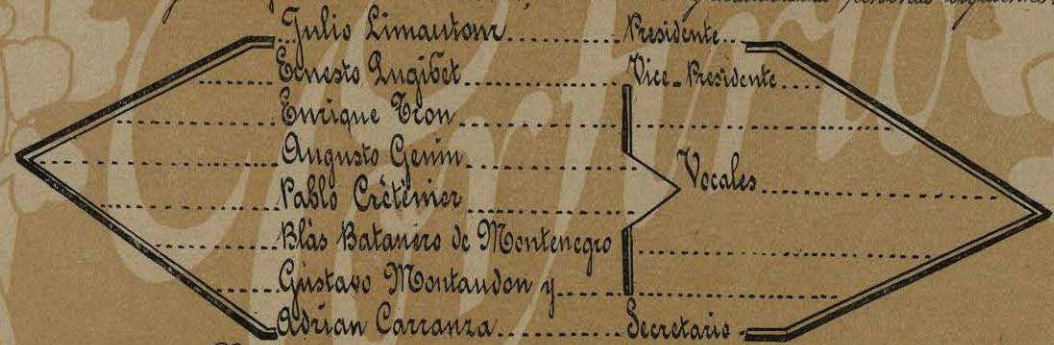 personas siguientes:
Julio Limantour Presidente
Ernesto Pugibet Vice-Presidente
Enrique Tron
Augusto Genin
Vocales
Pablo Crétenier
Blás Batanero de Montenegro
Gustavo Montaudon y
Adrian Carranza Secretario